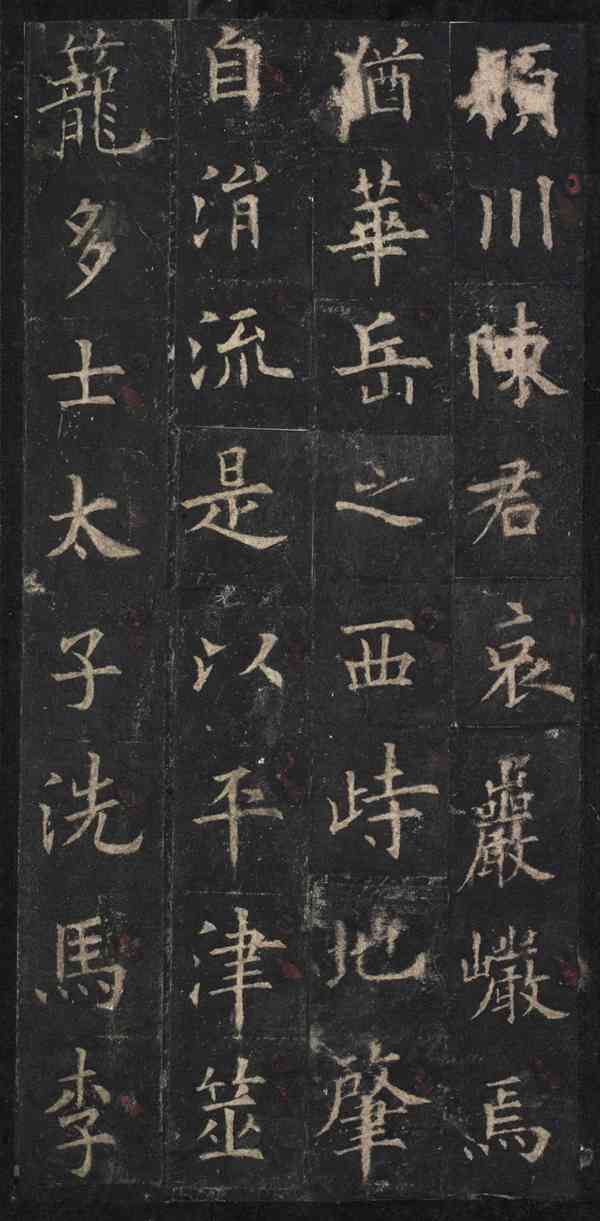 潁川陳君哀巖巖焉
猶華岳之西峙地肇
自涓流是以平津筮
籠多士太子洗馬李